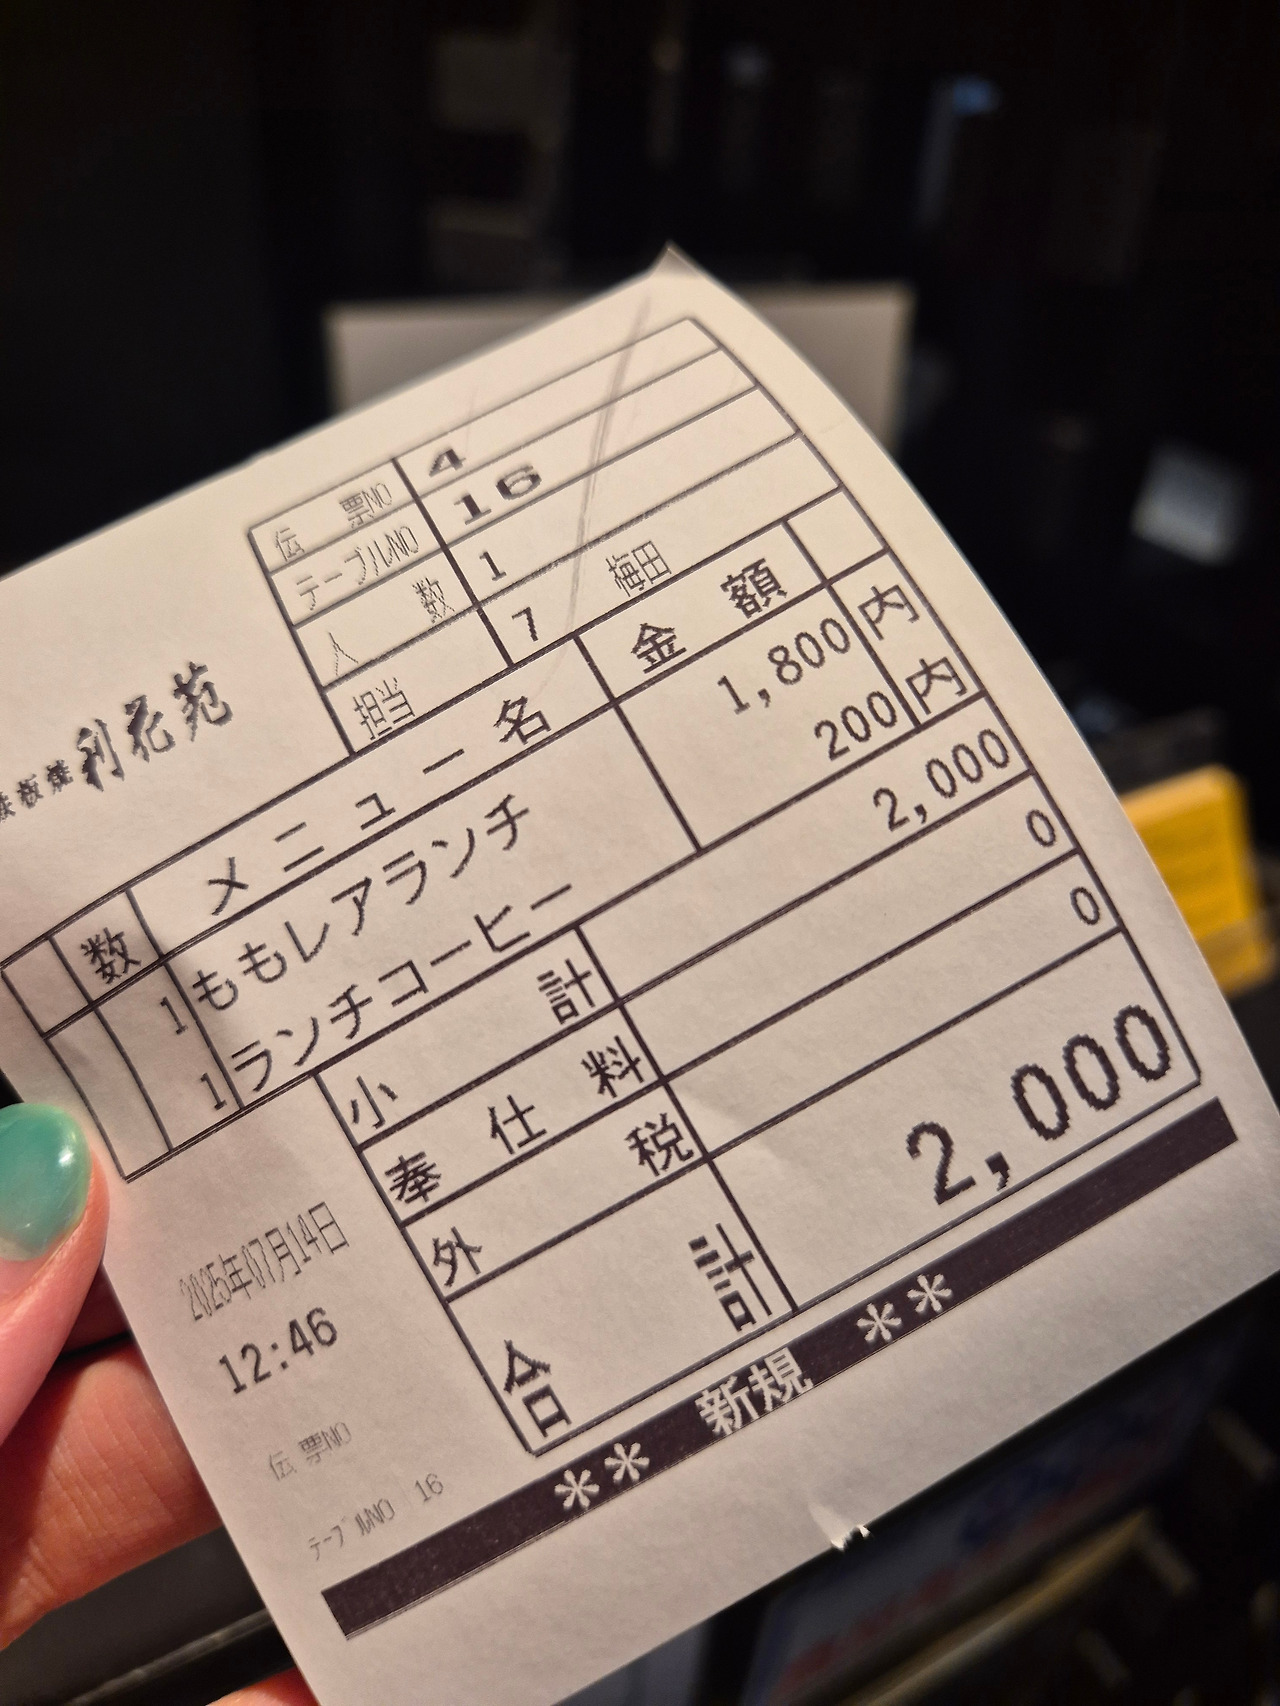 鉄板焼 利花苑
伝票NO 4
テーブルNO 16
人数 1
担当 7 梅田
数 メニュー名 金額
1 ももレアランチ 1,800 内
1 ランチコーヒー 200 内
小計 2,000
奉仕料 0
外税 0
合計 2,000
2025年07月14日
12:46
伝票NO
テーブルNO 16
** 新規 **